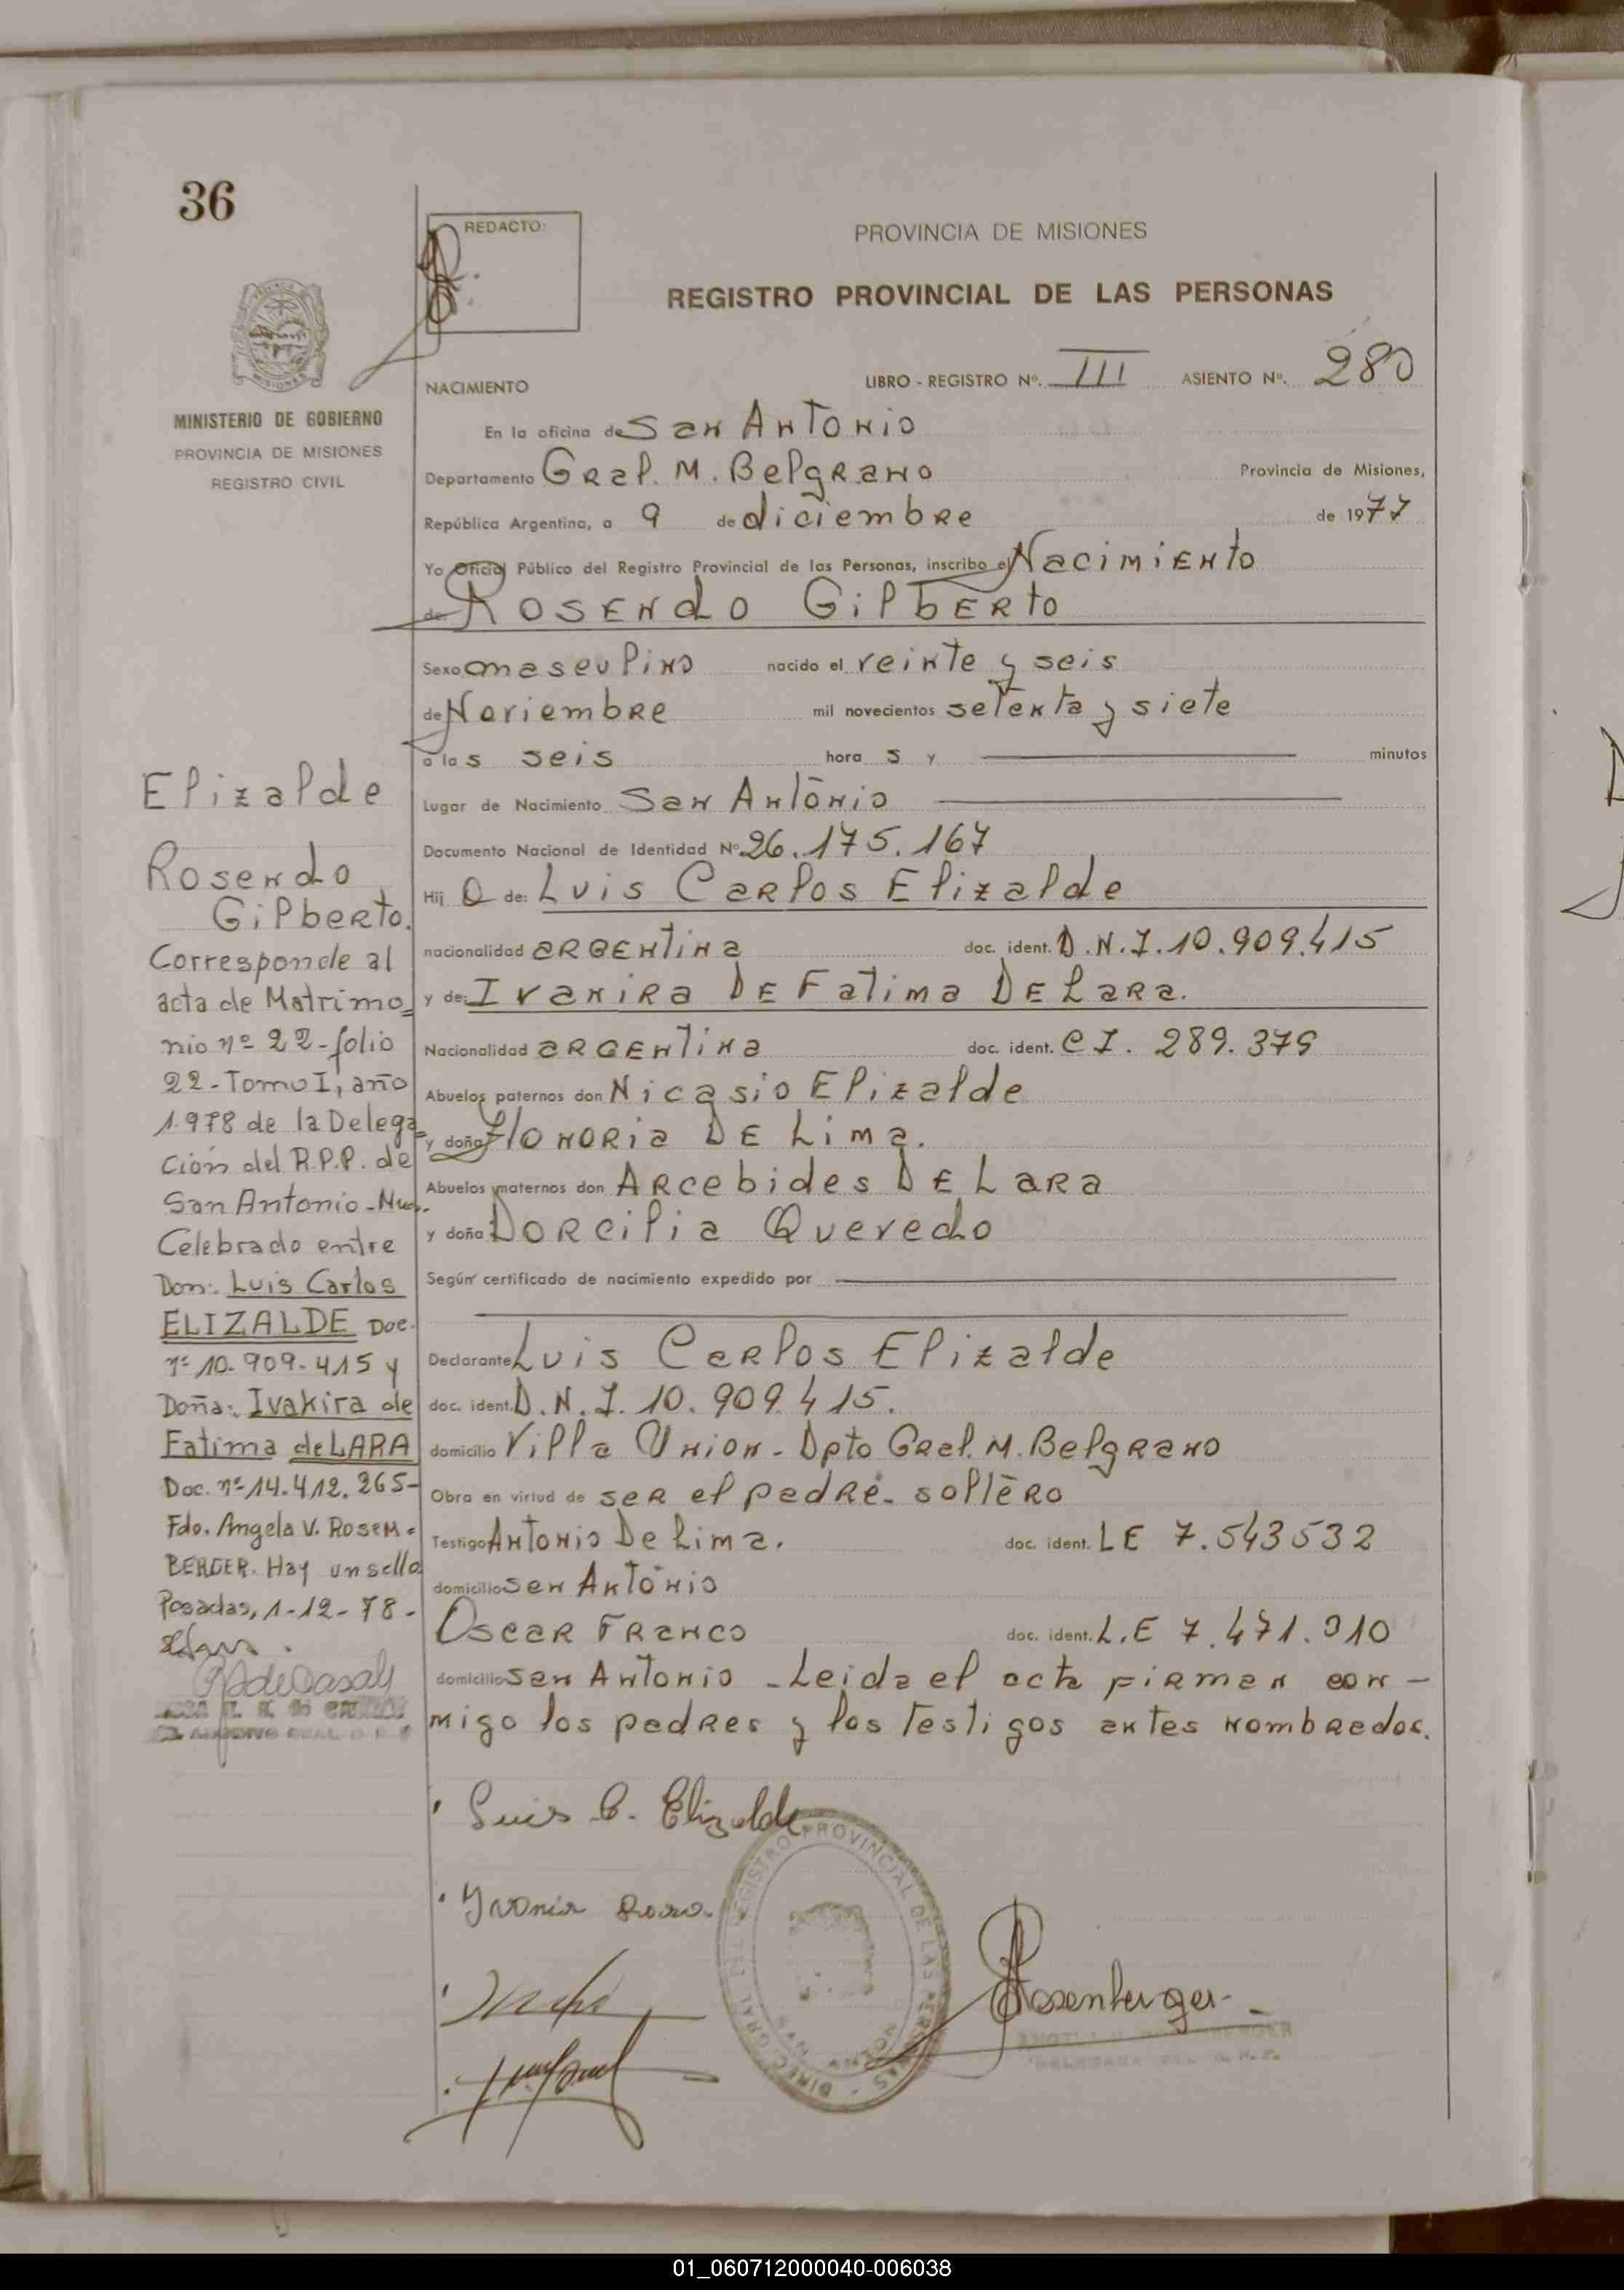 36
REDACTO:
PROVINCIA DE MISIONES
REGISTRO PROVINCIAL DE LAS PERSONAS
MINISTERIO DE GOBIERNO
PROVINCIA DE MISIONES
REGISTRO CIVIL
NACIMIENTO
LIBRO - REGISTRO Nº. III ASIENTO Nº. 280
En la oficina de San Antonio
Departamento Gral. M. Belgrano Provincia de Misiones,
República Argentina, a 9 de diciembre de 1977
Yo Oficial Público del Registro Provincial de las Personas, inscribo el Nacimiento
de Rosendo Gilberto
Sexo masculino nacido el veinte y seis
de Noviembre mil novecientos setenta y siete
a las seis hora s y minutos
Lugar de Nacimiento San Antonio
Documento Nacional de Identidad Nº 26.175.167
Hij o de: Luis Carlos Elizalde
nacionalidad argentina doc. ident. D.N.I. 10.909.415
y de: Ivanira De Fatima De Lara.
Nacionalidad argentina doc. ident. C I. 289.379
Abuelos paternos don Nicasio Elizalde
y doña Honoria De Lima.
Abuelos maternos don Arcebides De Lara
y doña Dorcilia Quevedo
Según certificado de nacimiento expedido por
Declarante Luis Carlos Elizalde
doc. ident. D.N.I. 10.909.415.
domicilio Villa Union - Dpto Gral. M. Belgrano
Obra en virtud de ser el padre - soltero
Testigo Antonio De Lima. doc. ident. LE 7.543532
domicilio San Antonio
Oscar Franco doc. ident. L.E 7.471.310
domicilio San Antonio - Leida el acta firman con -
migo los padres y los testigos antes nombrados.
Elizalde
Rosendo
Gilberto.
Corresponde al
acta de Matrimo=
nio nº 22-folio
22-Tomo I, año
1.978 de la Delega=
ción del R.P.P. de
San Antonio - Mnes.
Celebrado entre
Don: Luis Carlos
ELIZALDE Doc.
nº 10.909.415 y
Doña: Ivakira de
Fatima de LARA
Doc. nº 14.412.265-
Fdo. Angela V. Rosem=
BERGER. Hay un sello
Posadas, 1-12-78-
Luis C. Elizalde
Rosenberger
DIREC. GRAL. DEL REGISTRO PROVINCIAL DE LAS PERSONAS
SAN ANTONIO
01_060712000040-006038